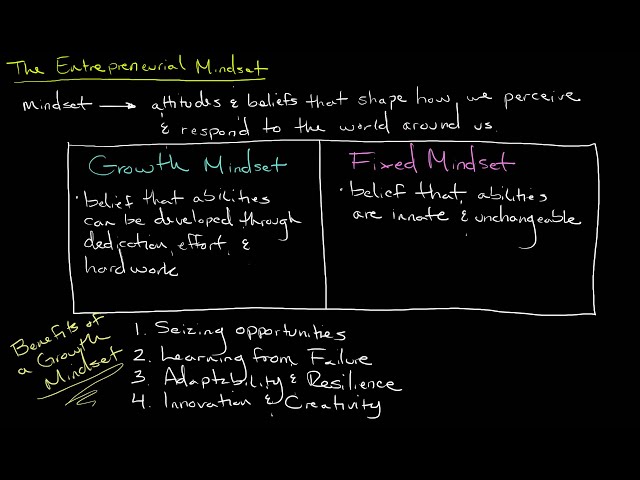 The Entrepreneurial Mindset
Mindset → attitudes & beliefs that shape how we perceive
& respond to the world around us.
Growth Mindset
· belief that abilities
can be developed through
dedication, effort, &
hard work
Fixed Mindset
· belief that abilities
are innate & unchangeable
Benefits of
a Growth
Mindset
1. Seizing opportunities
2. Learning from Failure
3. Adaptability & Resilience
4. Innovation & Creativity